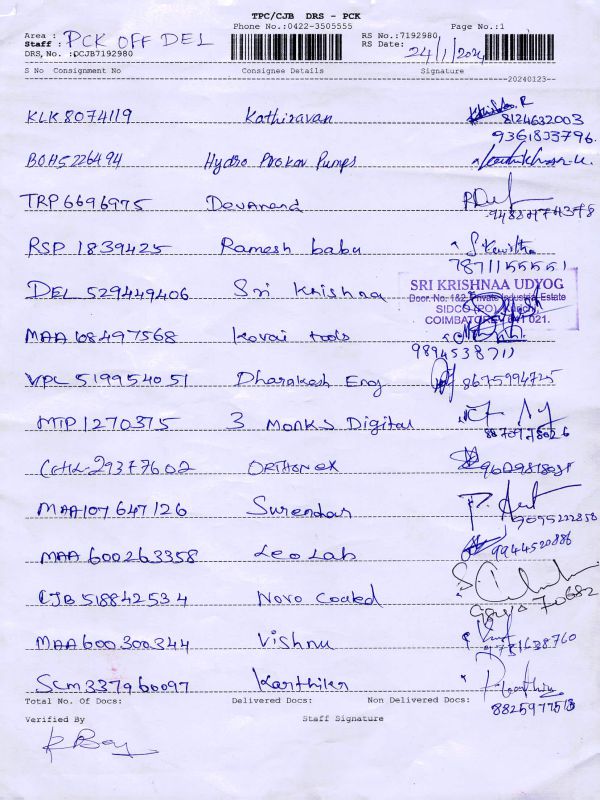 TPC/CJB DRS - PCK
Phone No.:0422-3505555 Page No.:1
Area : PCK OFF DEL RS No.:7192980
Staff : RS Date: 24/1/2024
DRS, No. :DCJB7192980
S No Consignment No Consignee Details Signature
20240123--
KLK 8074119 Kathiravan
8124632003
9361833796.
BOH5226494 Hydro Prokav Pumps
TRP 6696975 Devanand
RSP 1839425 Ramesh babu
DEL 529449406 Sri Krishna
SRI KRISHNAA UDYOG
Door. No. 1&2, Private Industrial Estate
SIDCO (PO), 
COIMBATORE - 641 021.
MAA 108497568 Kovai tools
9894538711
VPL 519954051 Dharakesh Eng 8675994725
MTP 1270375 3 Monks Digital
29377602 ORTHONEX
MAA107647126 Surendar
MAA 600263358 Leo Lab 9944520886
CJB 518842534 Novo Coated
MAA600300344 Vishnu 9751638760
SCM337960097 Karthika
8825977513
Total No. Of Docs: Delivered Docs: Non Delivered Docs:
Verified By Staff Signature